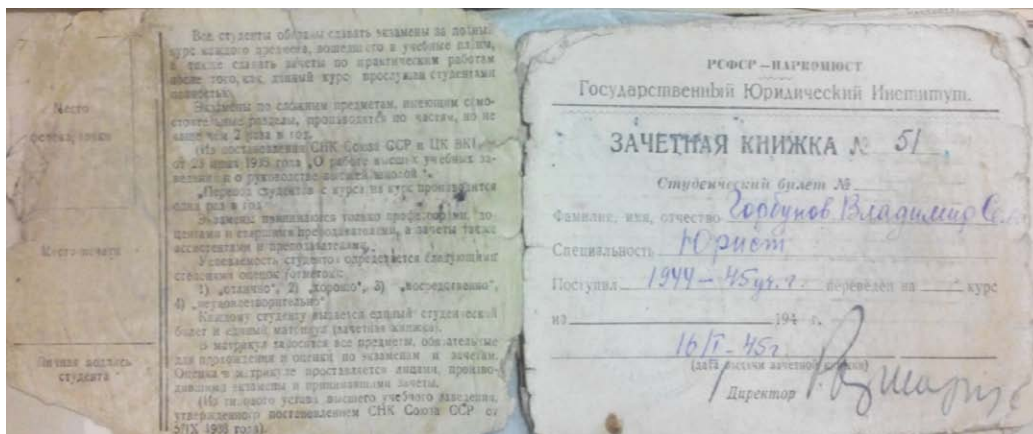 Место
Место печати
Личная подпись
студента
Все студенты обязаны сдавать экзамены за полный
курс каждого предмета, вошедшего в учебные планы,
а также сдавать зачеты по практическим работам
после того, как данный курс прослушан студентами
полностью.
Экзамены по сложным предметам, имеющим само-
стоятельные разделы, производятся по частям, но не
чаще чем 2 раза в год.
(Из постановления СНК Союза ССР и ЦК ВКП
от 23 июня 1936 года „О работе высших учебных за-
ведений и о руководстве высшей школой“.
„Перевод студентов с курса на курс производится
один раз в год
Экзамены принимаются только профессорами, до-
центами и старшими преподавателями, а зачеты также
ассистентами и преподавателями.
Успеваемость студентов определяется следующими
степенями оценок (отметок):
1) „отлично“, 2) „хорошо“, 3) „посредственно“,
4) „неудовлетворительно“
Каждому студенту выдается единый студенческий
билет и единый матрикул (зачетная книжка).
В матрикул заносятся все предметы, обязательные
для прохождения и оценки по экзаменам и зачетам.
Оценка в матрикуле проставляется лицами, произво-
дившими экзамены и принимавшими зачеты.
(Из типового устава высшего учебного заведения,
утвержденного постановлением СНК Союза ССР от
5/IX 1938 года).
РСФСР—НАРКОМЮСТ
Государственный Юридический Институт.
ЗАЧЕТНАЯ КНИЖКА № 51
Студенческий билет №
Фамилия, имя, отчество Горбунов Владимир
Специальность Юрист
Поступил 1944–45 уч. г. переведен на курс
из 194 г.
16/I-45г
(дата выдачи зачетной книжки)
Директор